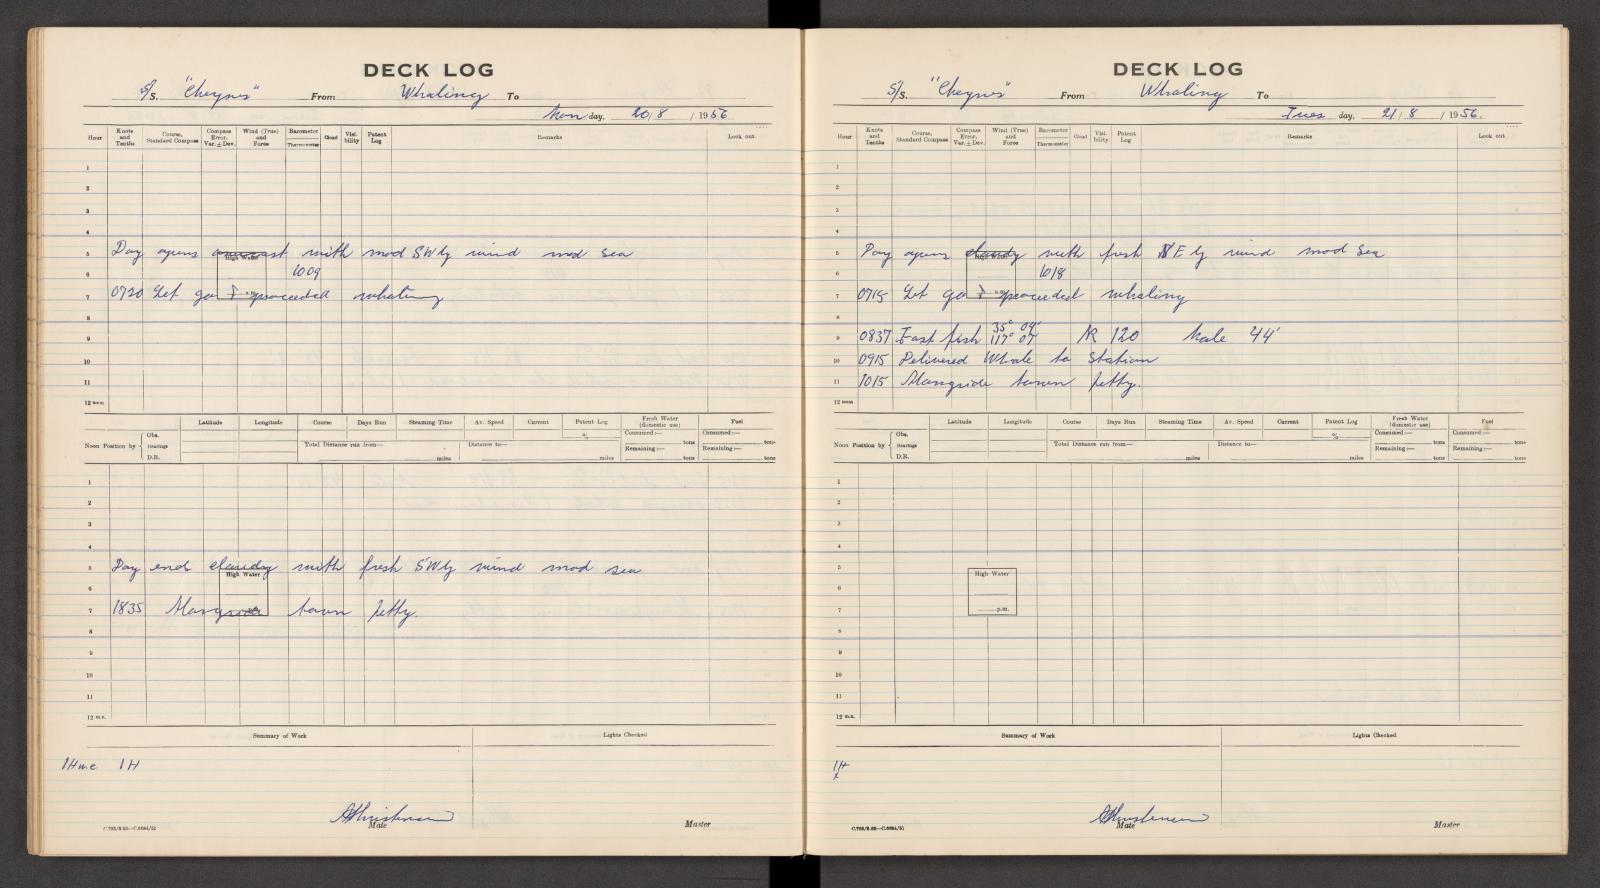 DECK LOG
S/S. "Cheynes" From Whaling To
Mon day, 20/8/1956
Hour Knots and Tenths Course, Standard Compass Compass Error, Var. ± Dev. Wind (True) and Force Barometer Thermometer Cloud Visibility Patent Log Remarks Look out
1
2
3
4
5 Day opens overcast with mod SWly wind mod sea
High Water
6 1009
7 0720 Let go & proceeded whaling
8
9
10
11
12 noon
Latitude Longitude Course Days Run Steaming Time Av. Speed Current Patent Log Fresh Water (domestic use) Fuel
Noon Position by Obs. Bearings D.R. Total Distance run from— miles Distance to— miles % Consumed :— tons Remaining :— tons Consumed :— tons Remaining :— tons
1
2
3
4
5 Day end cloudy with fresh SWly wind mod sea
High Water
6
7 1835 Alongside town jetty.
8
9
10
11
12 m.n.
Summary of Work Lights Checked
1H me 1H
AChristensen
Mate Master
DECK LOG
S/S. "Cheynes" From Whaling To
Tues day, 21/8/1956.
Hour Knots and Tenths Course, Standard Compass Compass Error, Var. ± Dev. Wind (True) and Force Barometer Thermometer Cloud Visibility Patent Log Remarks Look out
1
2
3
4
5 Day opens cloudy with fresh NEly wind mod sea
High Water
6 1018
7 0715 Let go & proceeded whaling
8
9 0837 Fast fish 35° 04' 117° 07' 120 Male 44'
10 0915 Delivered Whale to Station
11 1015 Alongside town jetty.
12 noon
Latitude Longitude Course Days Run Steaming Time Av. Speed Current Patent Log Fresh Water (domestic use) Fuel
Noon Position by Obs. Bearings D.R. Total Distance run from— miles Distance to— miles % Consumed :— tons Remaining :— tons Consumed :— tons Remaining :— tons
1
2
3
4
5
High Water
6
7 p.m.
8
9
10
11
12 m.n.
Summary of Work Lights Checked
1H
AChristensen
Mate Master